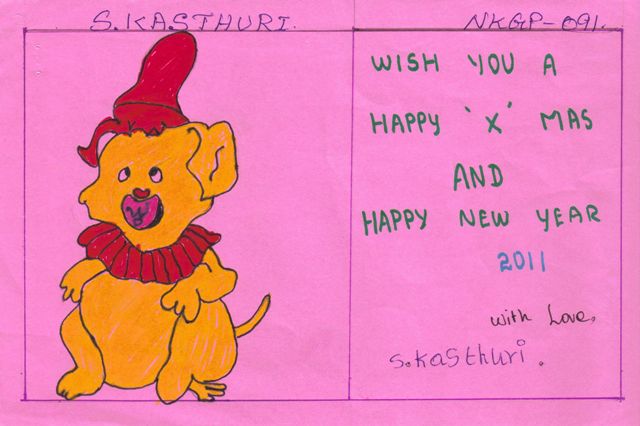 S.KASTHURI.
NKGP-091.
WISH YOU A
HAPPY 'X' MAS
AND
HAPPY NEW YEAR
2011
with Love,
S.Kasthuri.